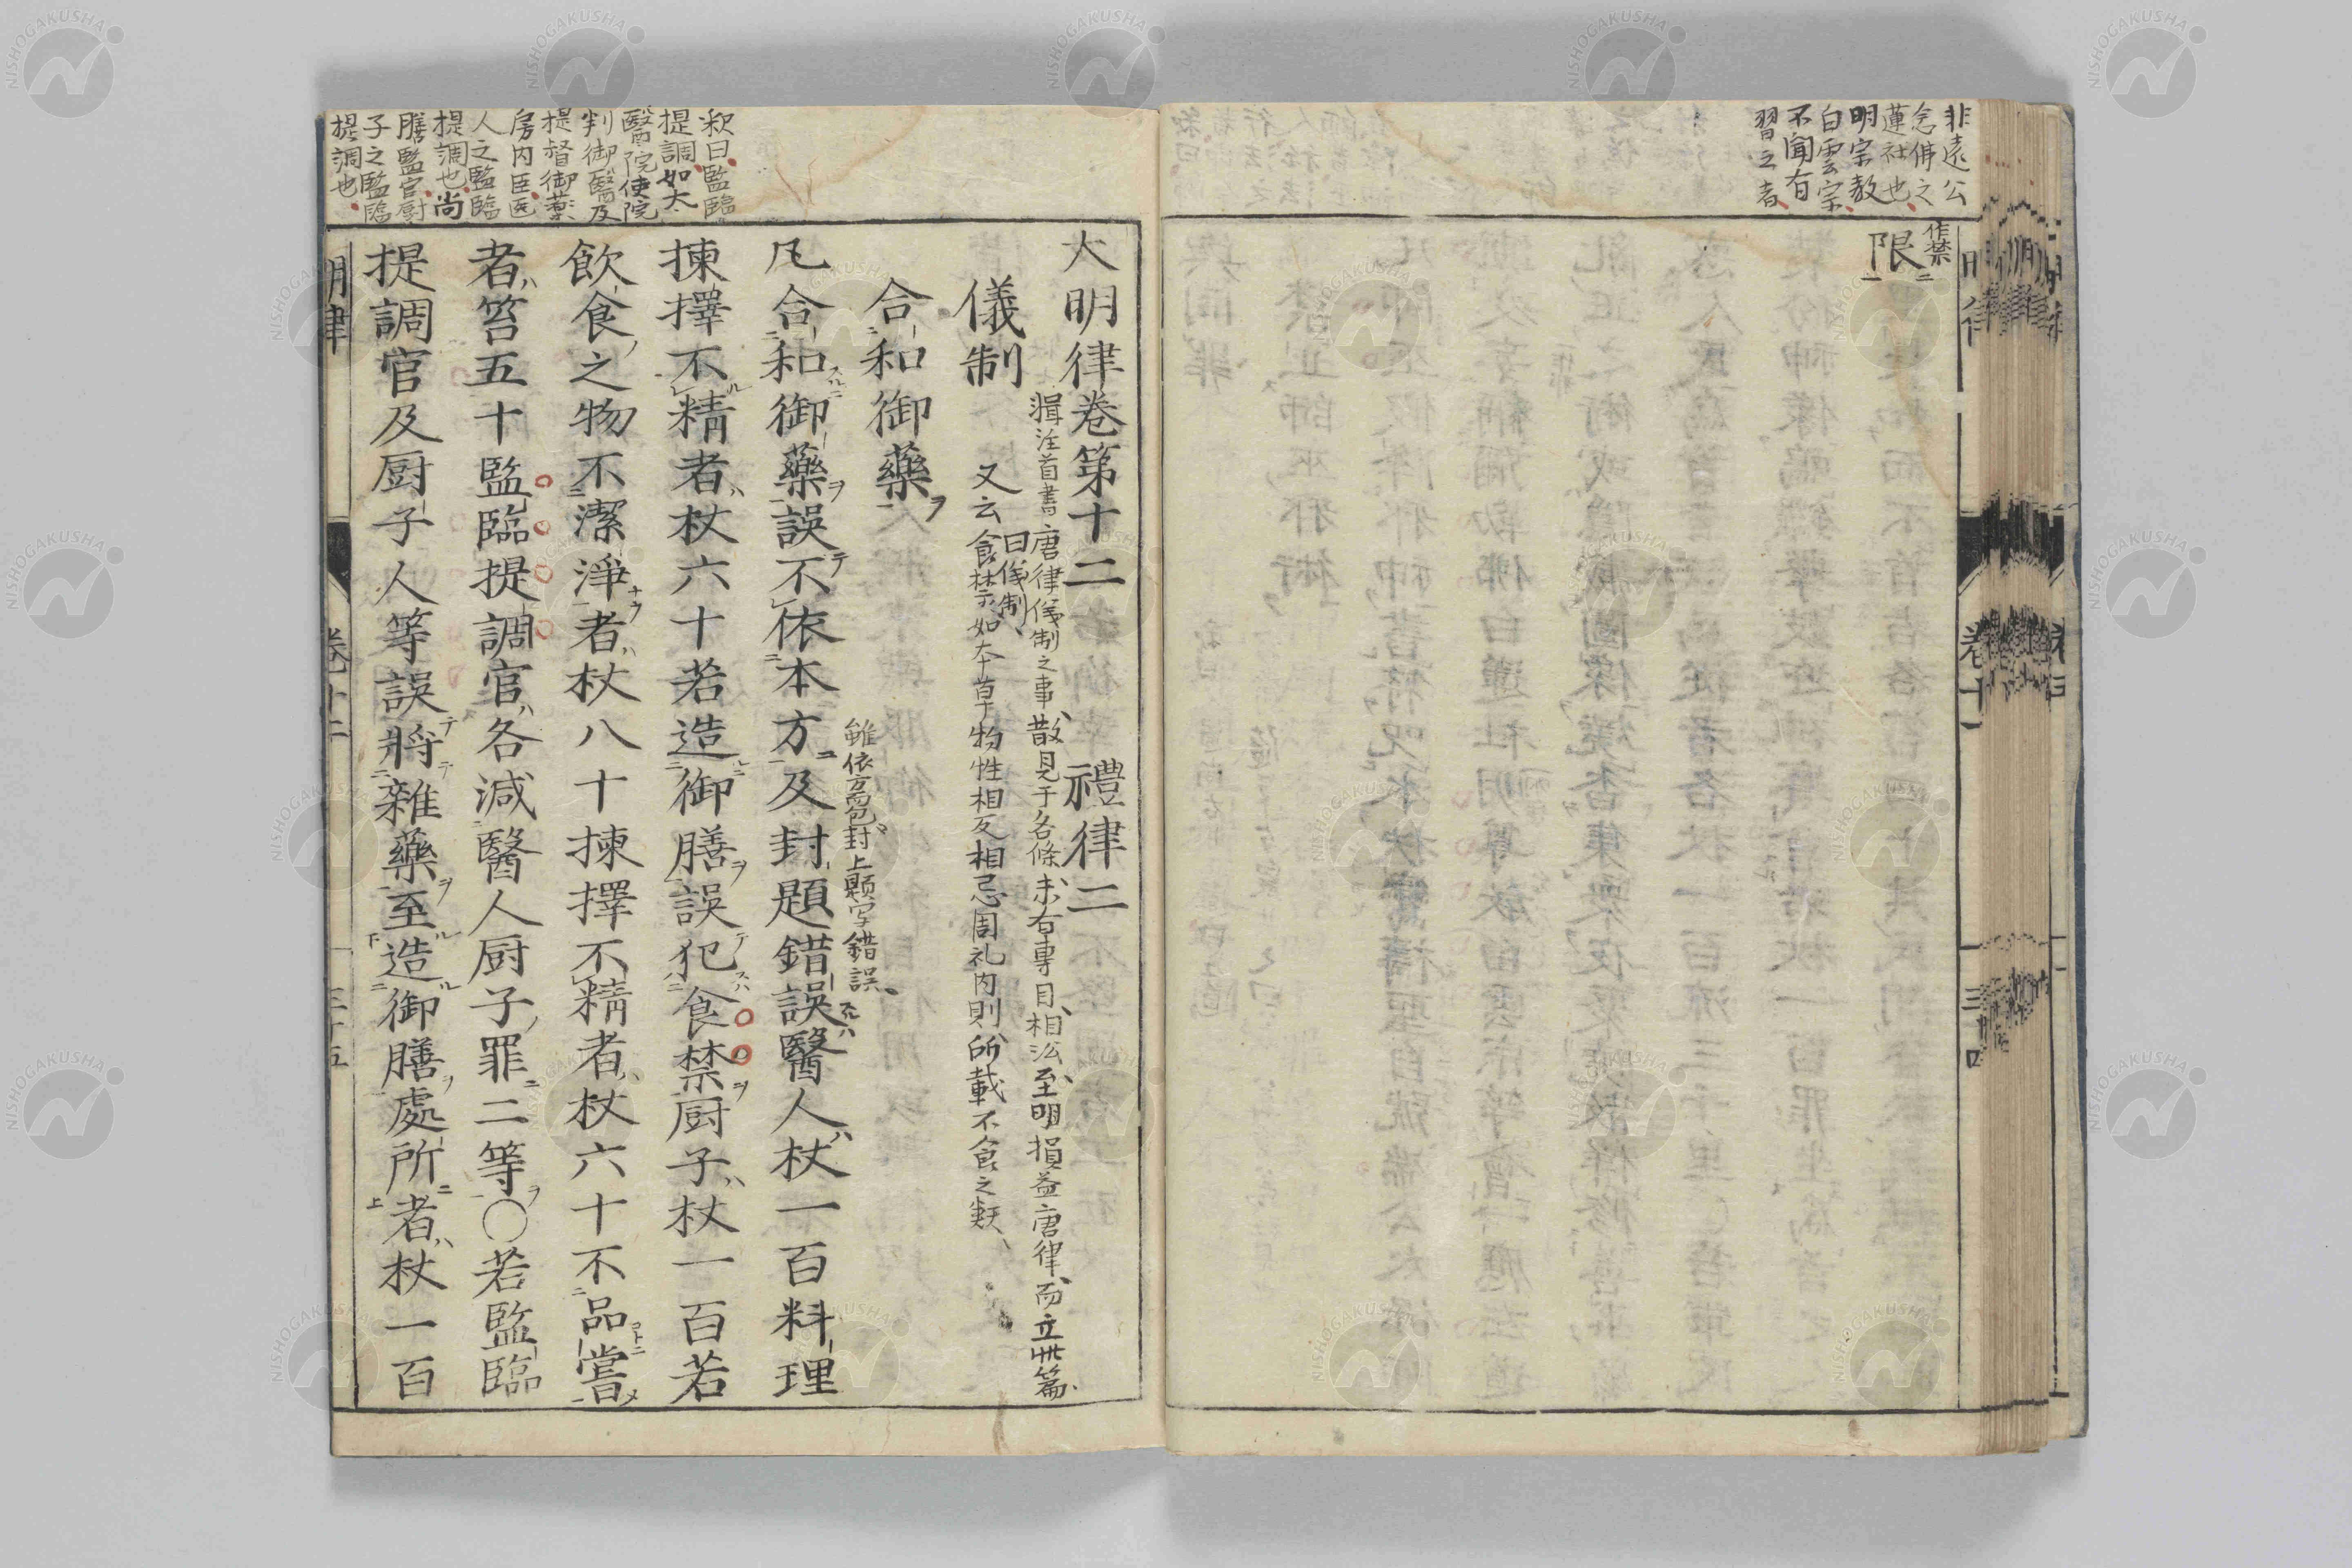 非遠公
念佛之
蓮社也
明宗教
白雲宗
不聞有
習之者
作禁
限
三四
大明律卷第十二 禮律二
儀制
輯注首書唐律儀制之事散見于各條未有專目相沿至明損益唐律而立此篇
曰儀制
又云食禁如本草物性相反相忌周礼内則所載不食之類
合和御藥ヲ
凡合和御藥誤不依本方及封題錯誤醫人杖一百料理
雖依方而包封上題字錯誤
揀擇不精者杖六十若造御膳誤犯食禁厨子杖一百若
飲食之物不潔淨者杖八十揀擇不精者杖六十不品嘗
者笞五十監臨提調官各減醫人厨子罪二等○若監臨
提調官及厨子人等誤將雜藥至造御膳處所者杖一百
釈曰監臨
提調如太
醫院使院
判御醫及
提督御藥
房内臣医
人之監臨
提調也尚
膳監官厨
子之監臨
提調也
明律 卷十二 三十五
NISHOGAKUSHA